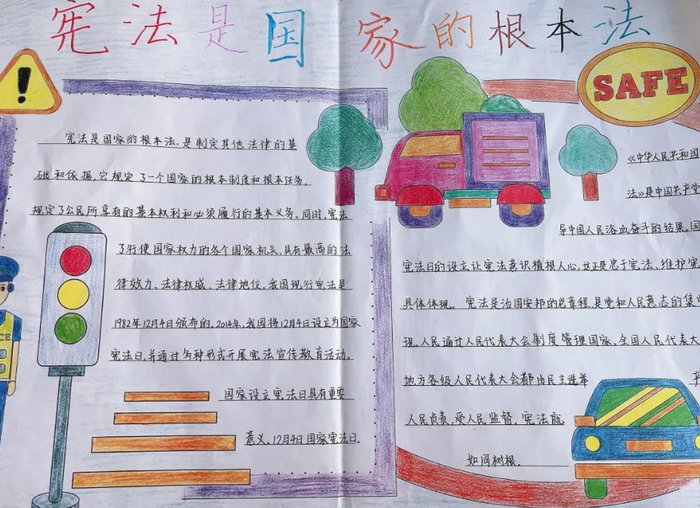 宪法是国家的根本法
SAFE
宪法是国家的根本法,是制定其他法律的基
础和依据,它规定了一个国家的根本制度和根本任务,
规定了公民所享有的基本权利和必须履行的基本义务。同时,宪法
了行使国家权力的各个国家机关,具有最高的法
律效力、法律权威、法律地位,我国现行宪法是
1982年12月4日颁布的,2014年,我国将12月4日设立为国家
宪法日,并通过多种形式开展宪法宣传教育活动。
国家设立宪法日具有重要
意义。12月4日国家宪法日。
《中华人民共和国
法》是中国共产党
导中国人民浴血奋斗的结果。国
宪法日的设立让宪法意识植根人心,这正是忠于宪法、维护宪
具体体现。宪法是治国安邦的总章程,是党和人民意志的集
现,人民通过人民代表大会制度管理国家。全国人民代表大
地方各级人民代表大会都由民主选举
人民负责,受人民监督。宪法就
如同树根.
CE